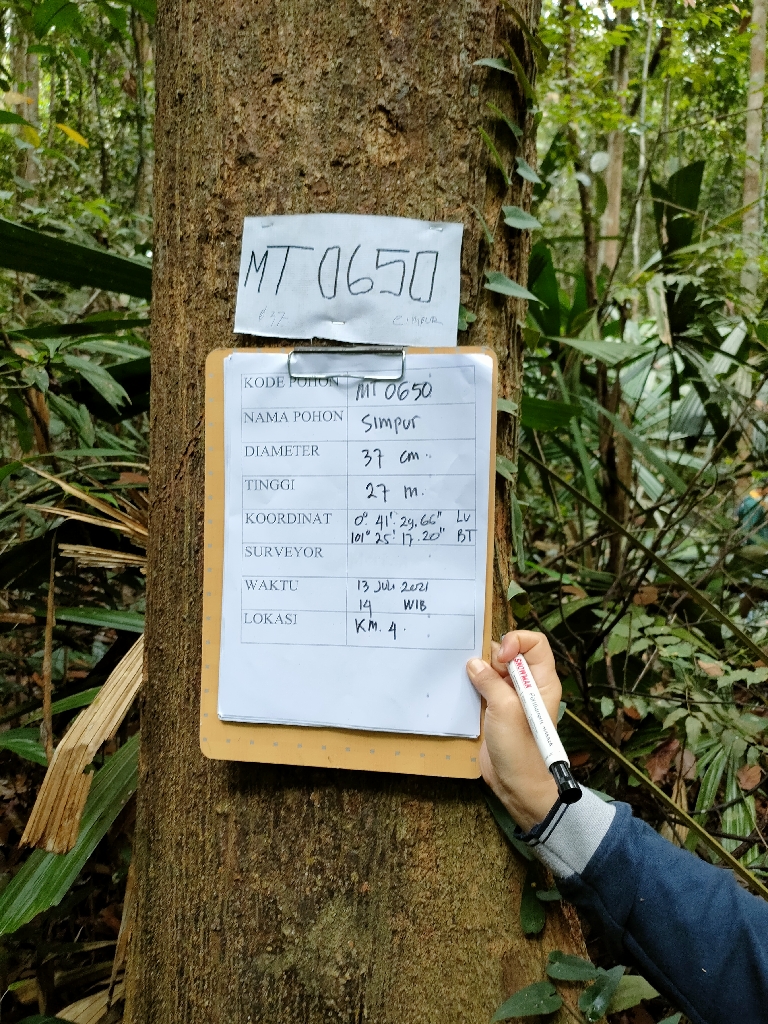 MT 0650
KODE POHON MT 0650
NAMA POHON Simpur
DIAMETER 37 cm.
TINGGI 27 m.
KOORDINAT 0° 41'. 29.66" LU
101° 25'. 17.20" BT
SURVEYOR
WAKTU 13 Juli 2021
14 WIB
LOKASI KM. 4.
SNOWMAN